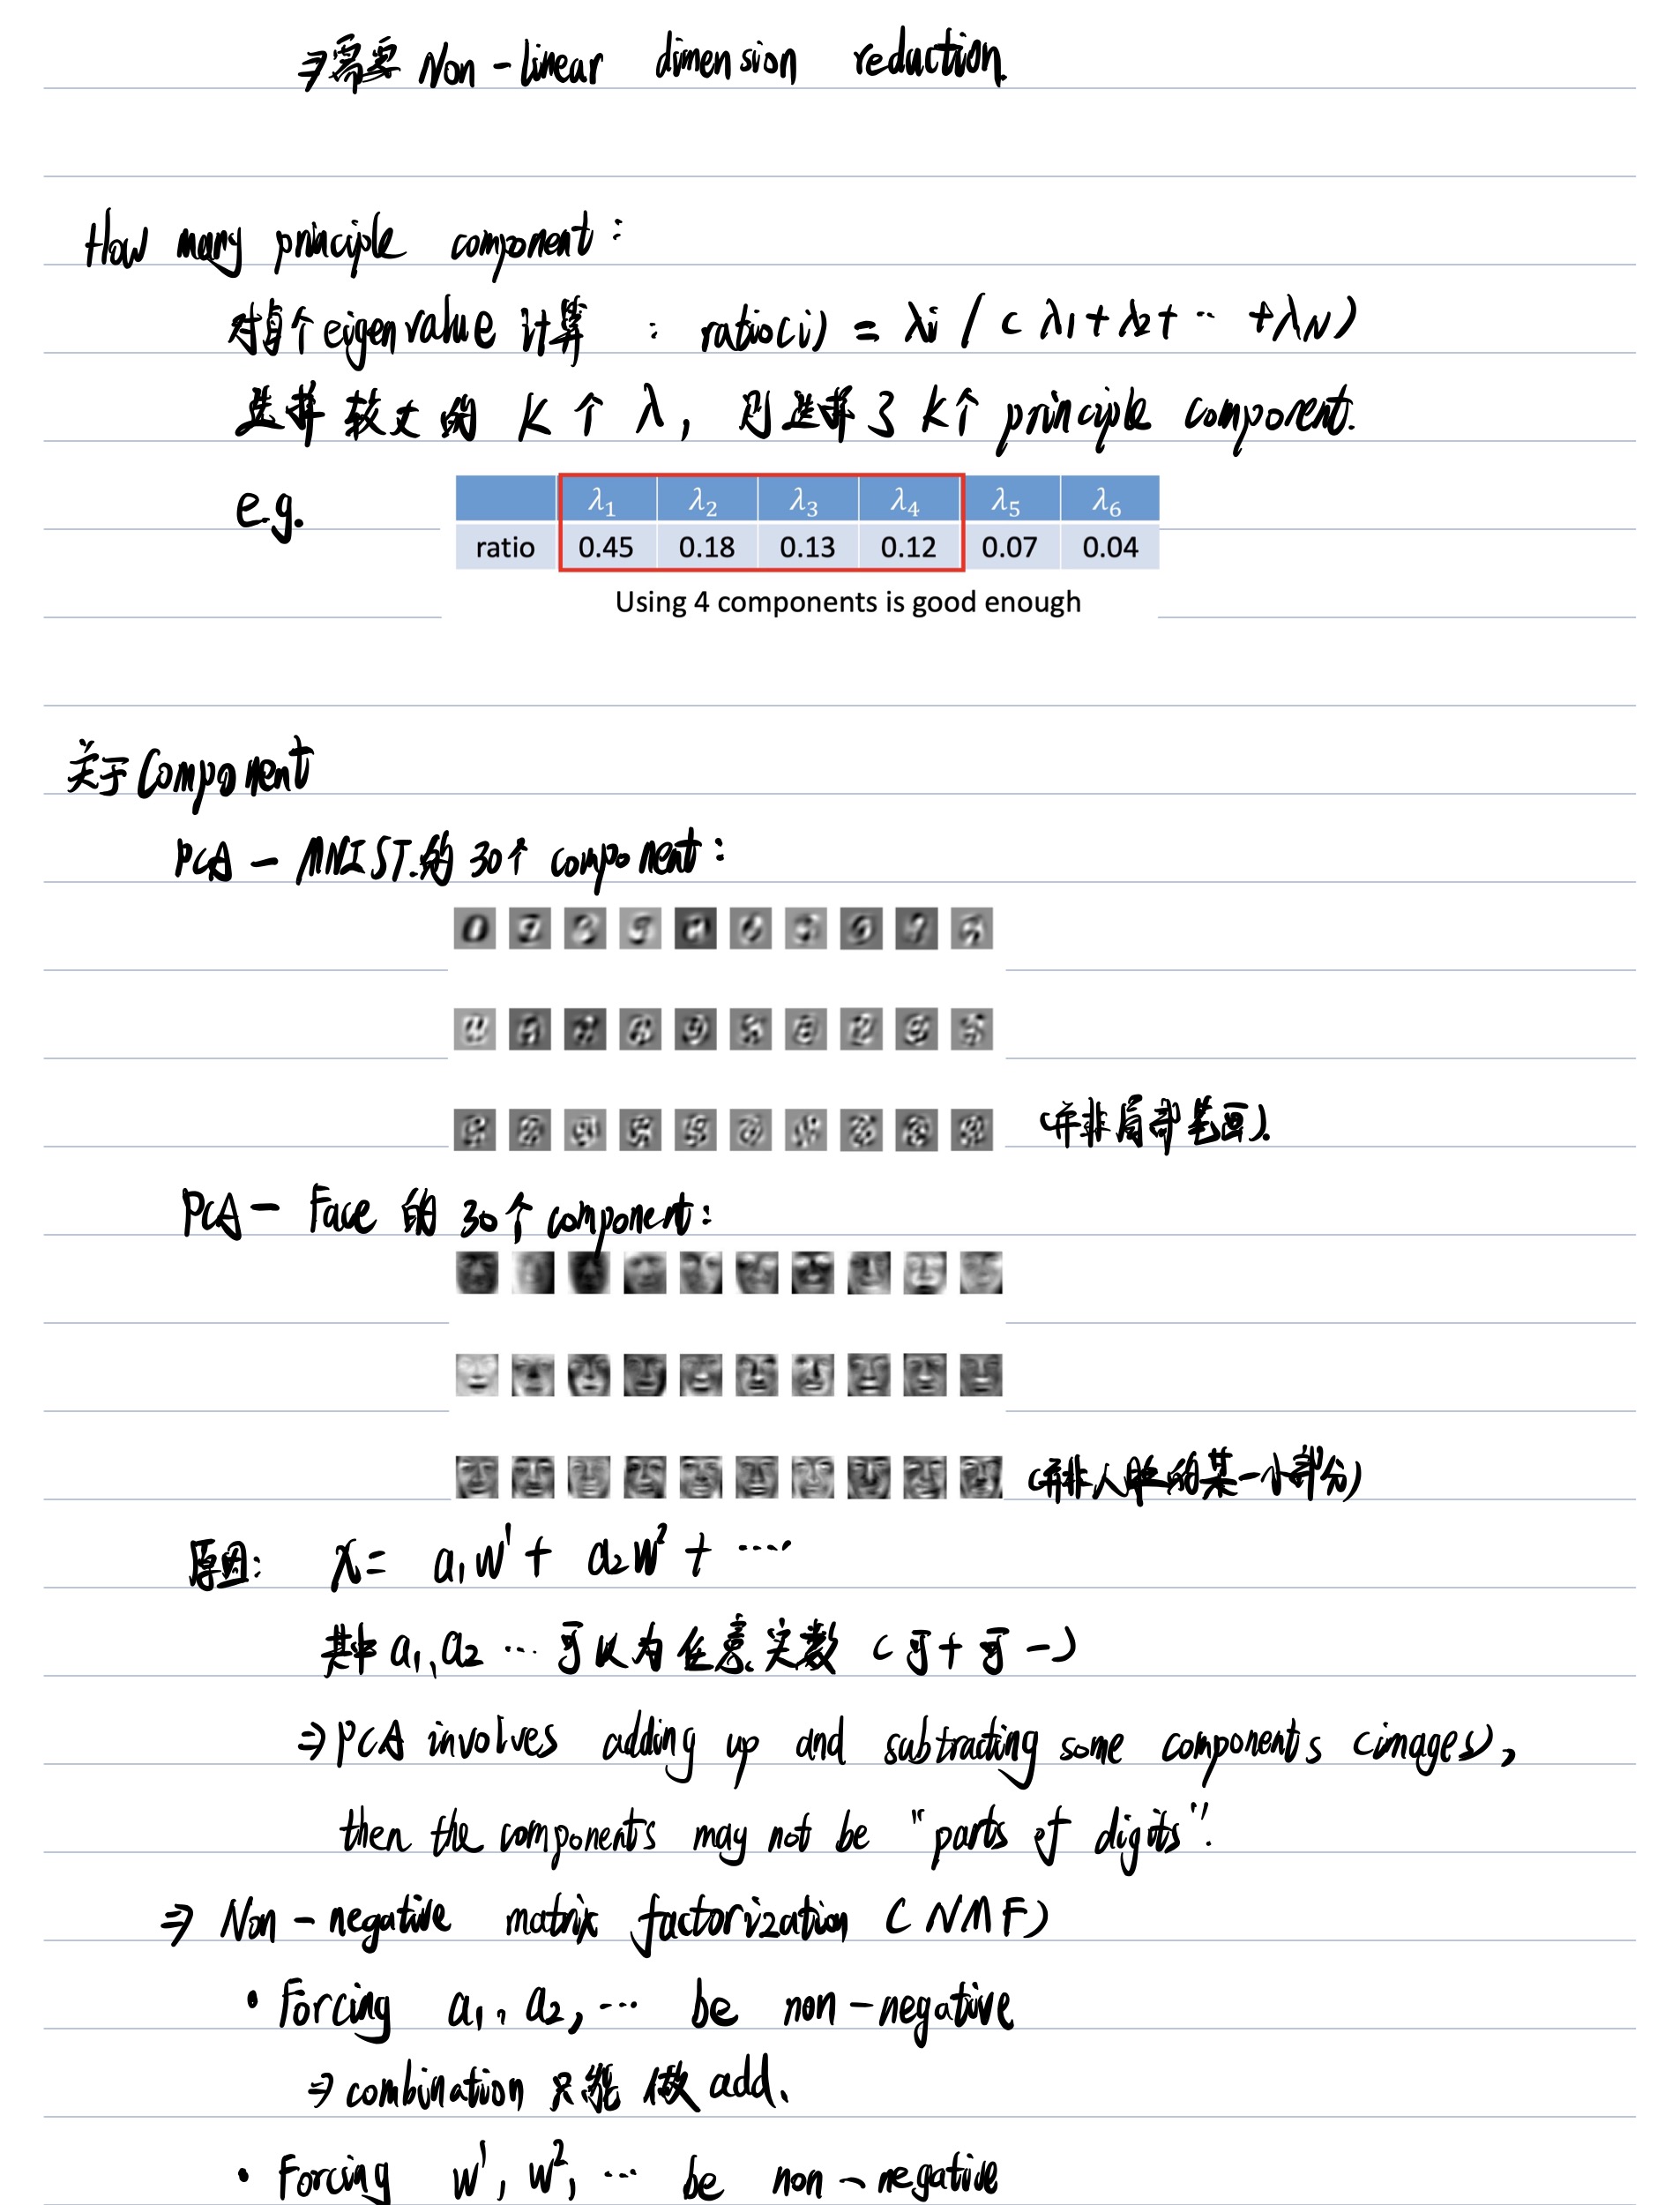 ⇒需要 Non-linear dimension reduction.
How many principle component:
对每个eigenvalue 计算 : ratio(i) = λi / ( λ1+λ2+ ·· +λN)
选择较大的 K 个 λ, 则选择了 K个 principle component.
e.g.
λ1 λ2 λ3 λ4 λ5 λ6
ratio 0.45 0.18 0.13 0.12 0.07 0.04
Using 4 components is good enough
关于Component
PCA - MNIST.的 30个 component:
(并非局部笔画).
PCA - Face 的 30个 component:
(并非人脸的某一小部分)
原因: x = a₁w¹ + a₂w² + ····
其中 a₁,a₂ ··· 可以为任意实数 (可+可-)
⇒ PCA involves adding up and subtracting some components (images),
then the components may not be "parts of digits".
⇒ Non-negative matrix factorization (NMF)
• Forcing a₁, a₂, ··· be non-negative
⇒ combination 只能做 add、
• Forcing w¹, w², ··· be non-negative